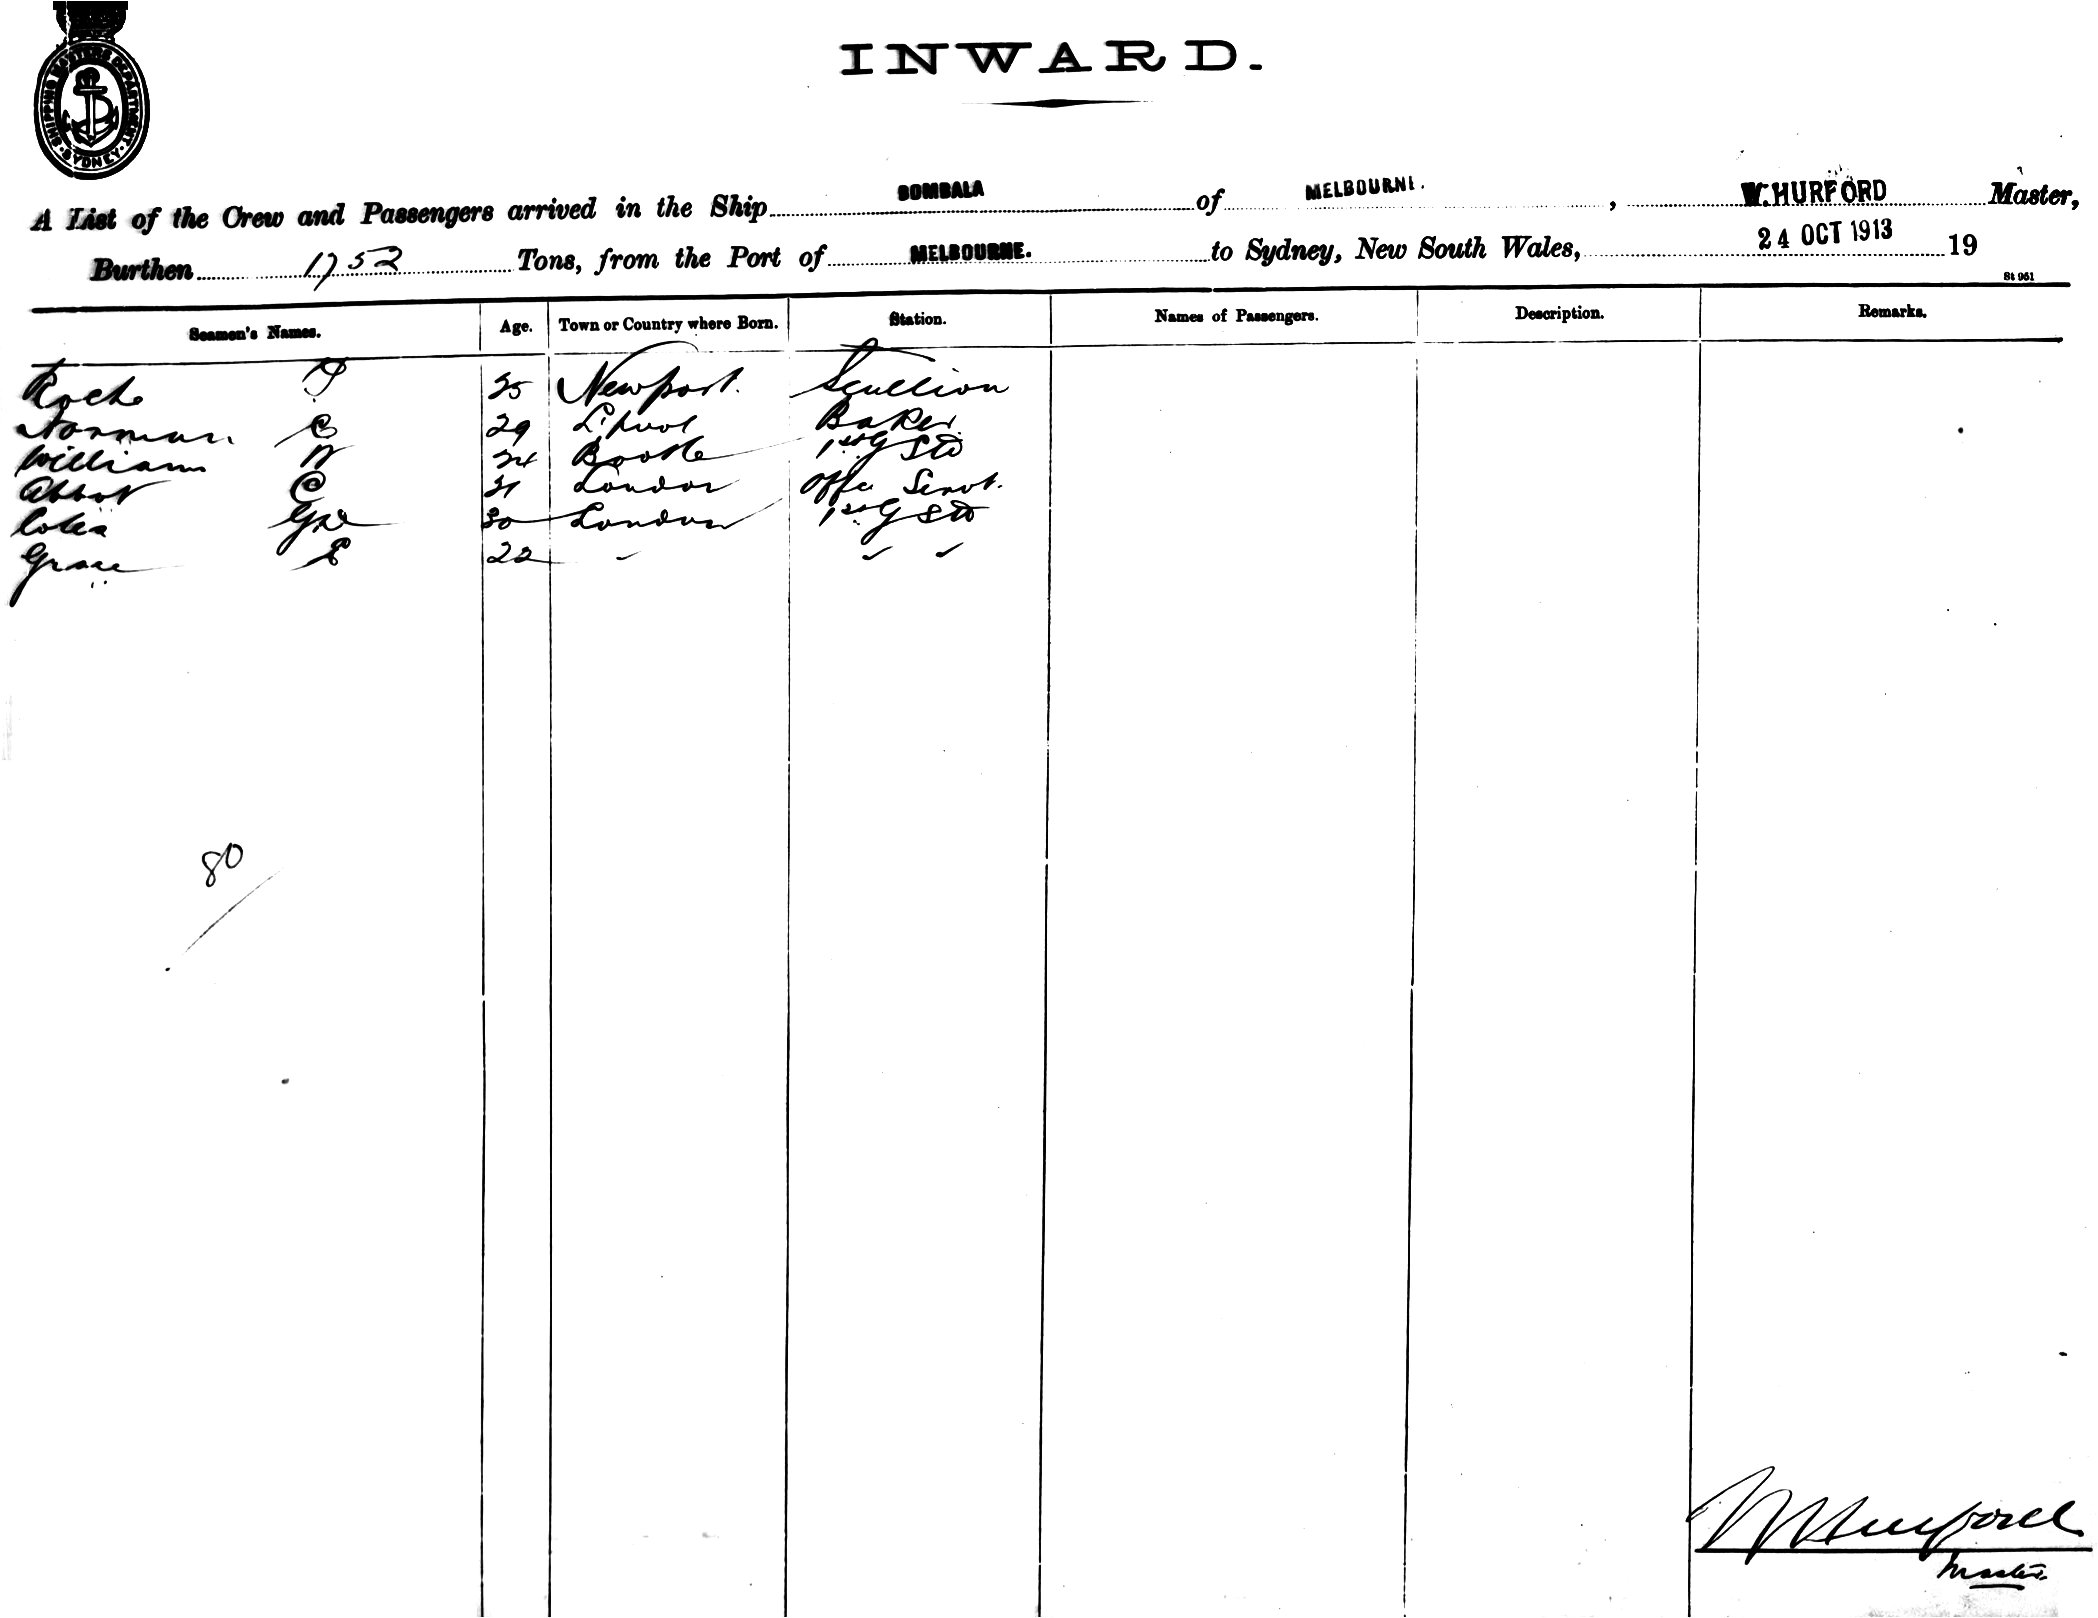 SHIPPING MASTERS DEPARTMENT
SYDNEY
INWARD.
A List of the Crew and Passengers arrived in the Ship BOMBALA of MELBOURNE. , W. HURFORD Master,
Burthen 1752 Tons, from the Port of MELBOURNE. to Sydney, New South Wales, 24 OCT 1913 19
St 961
Seamen's Names. Age. Town or Country where Born. Station. Names of Passengers. Description. Remarks.
Roche 25 Newport. Scullion
Norman C 29 L'pool Baker
William W 24 Bootle 1st G Std
Abbot C 31 London Offs Servt.
Coles Geo 30 London 1st G Std
Grace E 22 " " "
80
W Hurford
Master.